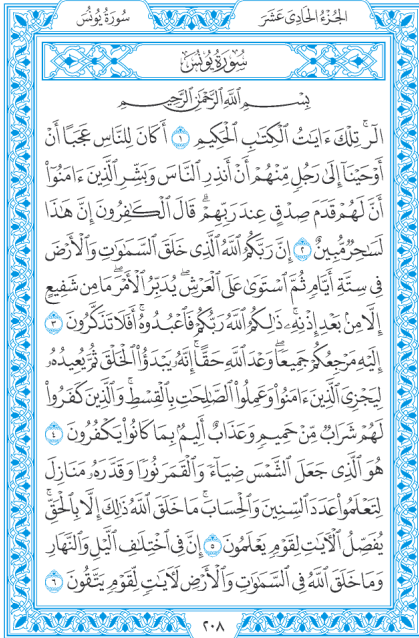 سُورَةُ يُونُسَ
الجُزْءُ الحَادِي عَشَرَ
سُورَةُ يُونُسَ
بِسْمِ اللَّهِ الرَّحْمَٰنِ الرَّحِيمِ
الٓرۚ تِلْكَ ءَايَٰتُ ٱلْكِتَٰبِ ٱلْحَكِيمِ ١ أَكَانَ لِلنَّاسِ عَجَبًا أَنْ
أَوْحَيْنَآ إِلَىٰ رَجُلٍ مِّنْهُمْ أَنْ أَنذِرِ ٱلنَّاسَ وَبَشِّرِ ٱلَّذِينَ ءَامَنُوٓا۟
أَنَّ لَهُمْ قَدَمَ صِدْقٍ عِندَ رَبِّهِمْۗ قَالَ ٱلْكَٰفِرُونَ إِنَّ هَٰذَا
لَسَٰحِرٌ مُّبِينٌ ٢ إِنَّ رَبَّكُمُ ٱللَّهُ ٱلَّذِى خَلَقَ ٱلسَّمَٰوَٰتِ وَٱلْأَرْضَ
فِى سِتَّةِ أَيَّامٍ ثُمَّ ٱسْتَوَىٰ عَلَى ٱلْعَرْشِۖ يُدَبِّرُ ٱلْأَمْرَۖ مَا مِن شَفِيعٍ
إِلَّا مِنۢ بَعْدِ إِذْنِهِۦۚ ذَٰلِكُمُ ٱللَّهُ رَبُّكُمْ فَٱعْبُدُوهُۚ أَفَلَا تَذَكَّرُونَ ٣
إِلَيْهِ مَرْجِعُكُمْ جَمِيعًاۖ وَعْدَ ٱللَّهِ حَقًّاۚ إِنَّهُۥ يَبْدَؤُا۟ ٱلْخَلْقَ ثُمَّ يُعِيدُهُۥ
لِيَجْزِىَ ٱلَّذِينَ ءَامَنُوا۟ وَعَمِلُوا۟ ٱلصَّٰلِحَٰتِ بِٱلْقِسْطِۚ وَٱلَّذِينَ كَفَرُوا۟
لَهُمْ شَرَابٌ مِّنْ حَمِيمٍ وَعَذَابٌ أَلِيمٌۢ بِمَا كَانُوا۟ يَكْفُرُونَ ٤
هُوَ ٱلَّذِى جَعَلَ ٱلشَّمْسَ ضِيَآءً وَٱلْقَمَرَ نُورًا وَقَدَّرَهُۥ مَنَازِلَ
لِتَعْلَمُوا۟ عَدَدَ ٱلسِّنِينَ وَٱلْحِسَابَۚ مَا خَلَقَ ٱللَّهُ ذَٰلِكَ إِلَّا بِٱلْحَقِّۚ
يُفَصِّلُ ٱلْءَايَٰتِ لِقَوْمٍ يَعْلَمُونَ ٥ إِنَّ فِى ٱخْتِلَٰفِ ٱلَّيْلِ وَٱلنَّهَارِ
وَمَا خَلَقَ ٱللَّهُ فِى ٱلسَّمَٰوَٰتِ وَٱلْأَرْضِ لَءَايَٰتٍ لِّقَوْمٍ يَتَّقُونَ ٦
٢٠٨